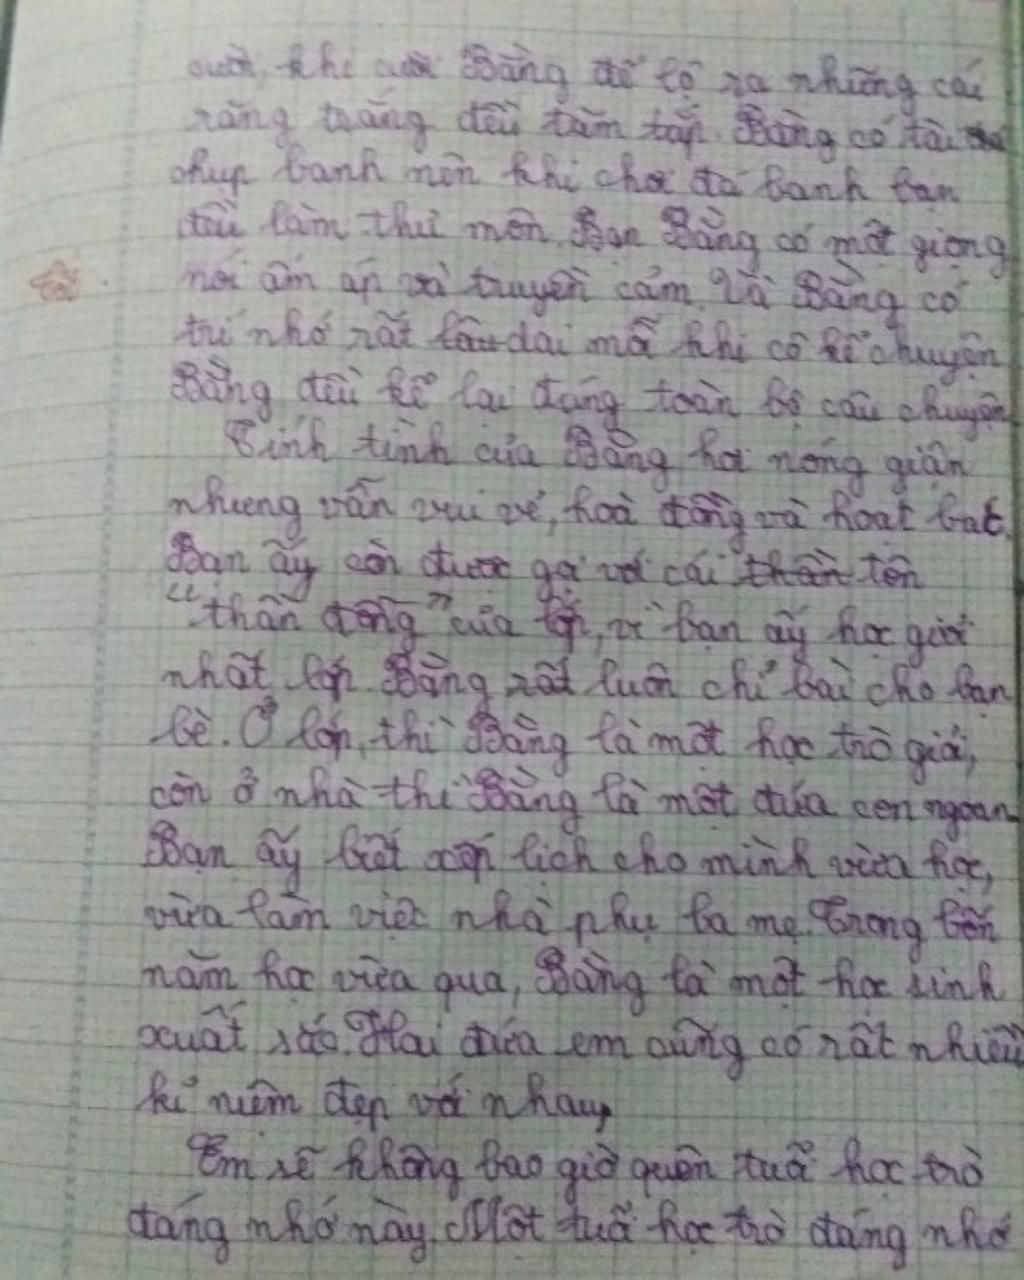 cười, khi cười Bằng để lộ ra những cái
răng trắng đều tăm tắp. Bằng có tài
chụp banh nên khi chơi đá banh bạn
đều làm thủ môn. Bạn Bằng có một giọng
nói ấm áp và truyền cảm. Và Bằng có
trí nhớ rất lâu dài mỗi khi cô kể chuyện
Bằng đều kể lại đúng toàn bộ câu chuyện
Tính tình của Bằng hơi nóng giận
nhưng vẫn vui vẻ, hoà đồng và hoạt bát.
Bạn ấy còn được gọi với cái thần tên
"thần đồng" của lớp, vì bạn ấy học giỏi
nhất lớp. Bằng rất luôn chỉ bài cho bạn
bè. Ở lớp, thì Bằng là một học trò giỏi,
còn ở nhà thì Bằng là một đứa con ngoan.
Bạn ấy biết xếp lịch cho mình vừa học,
vừa làm việc nhà phụ ba mẹ. Trong bốn
năm học vừa qua, Bằng là một học sinh
xuất sắc. Hai đứa em cũng có rất nhiều
kỉ niệm đẹp với nhau.
Em sẽ không bao giờ quên tuổi học trò
đáng nhớ này. Một tuổi học trò đáng nhớ